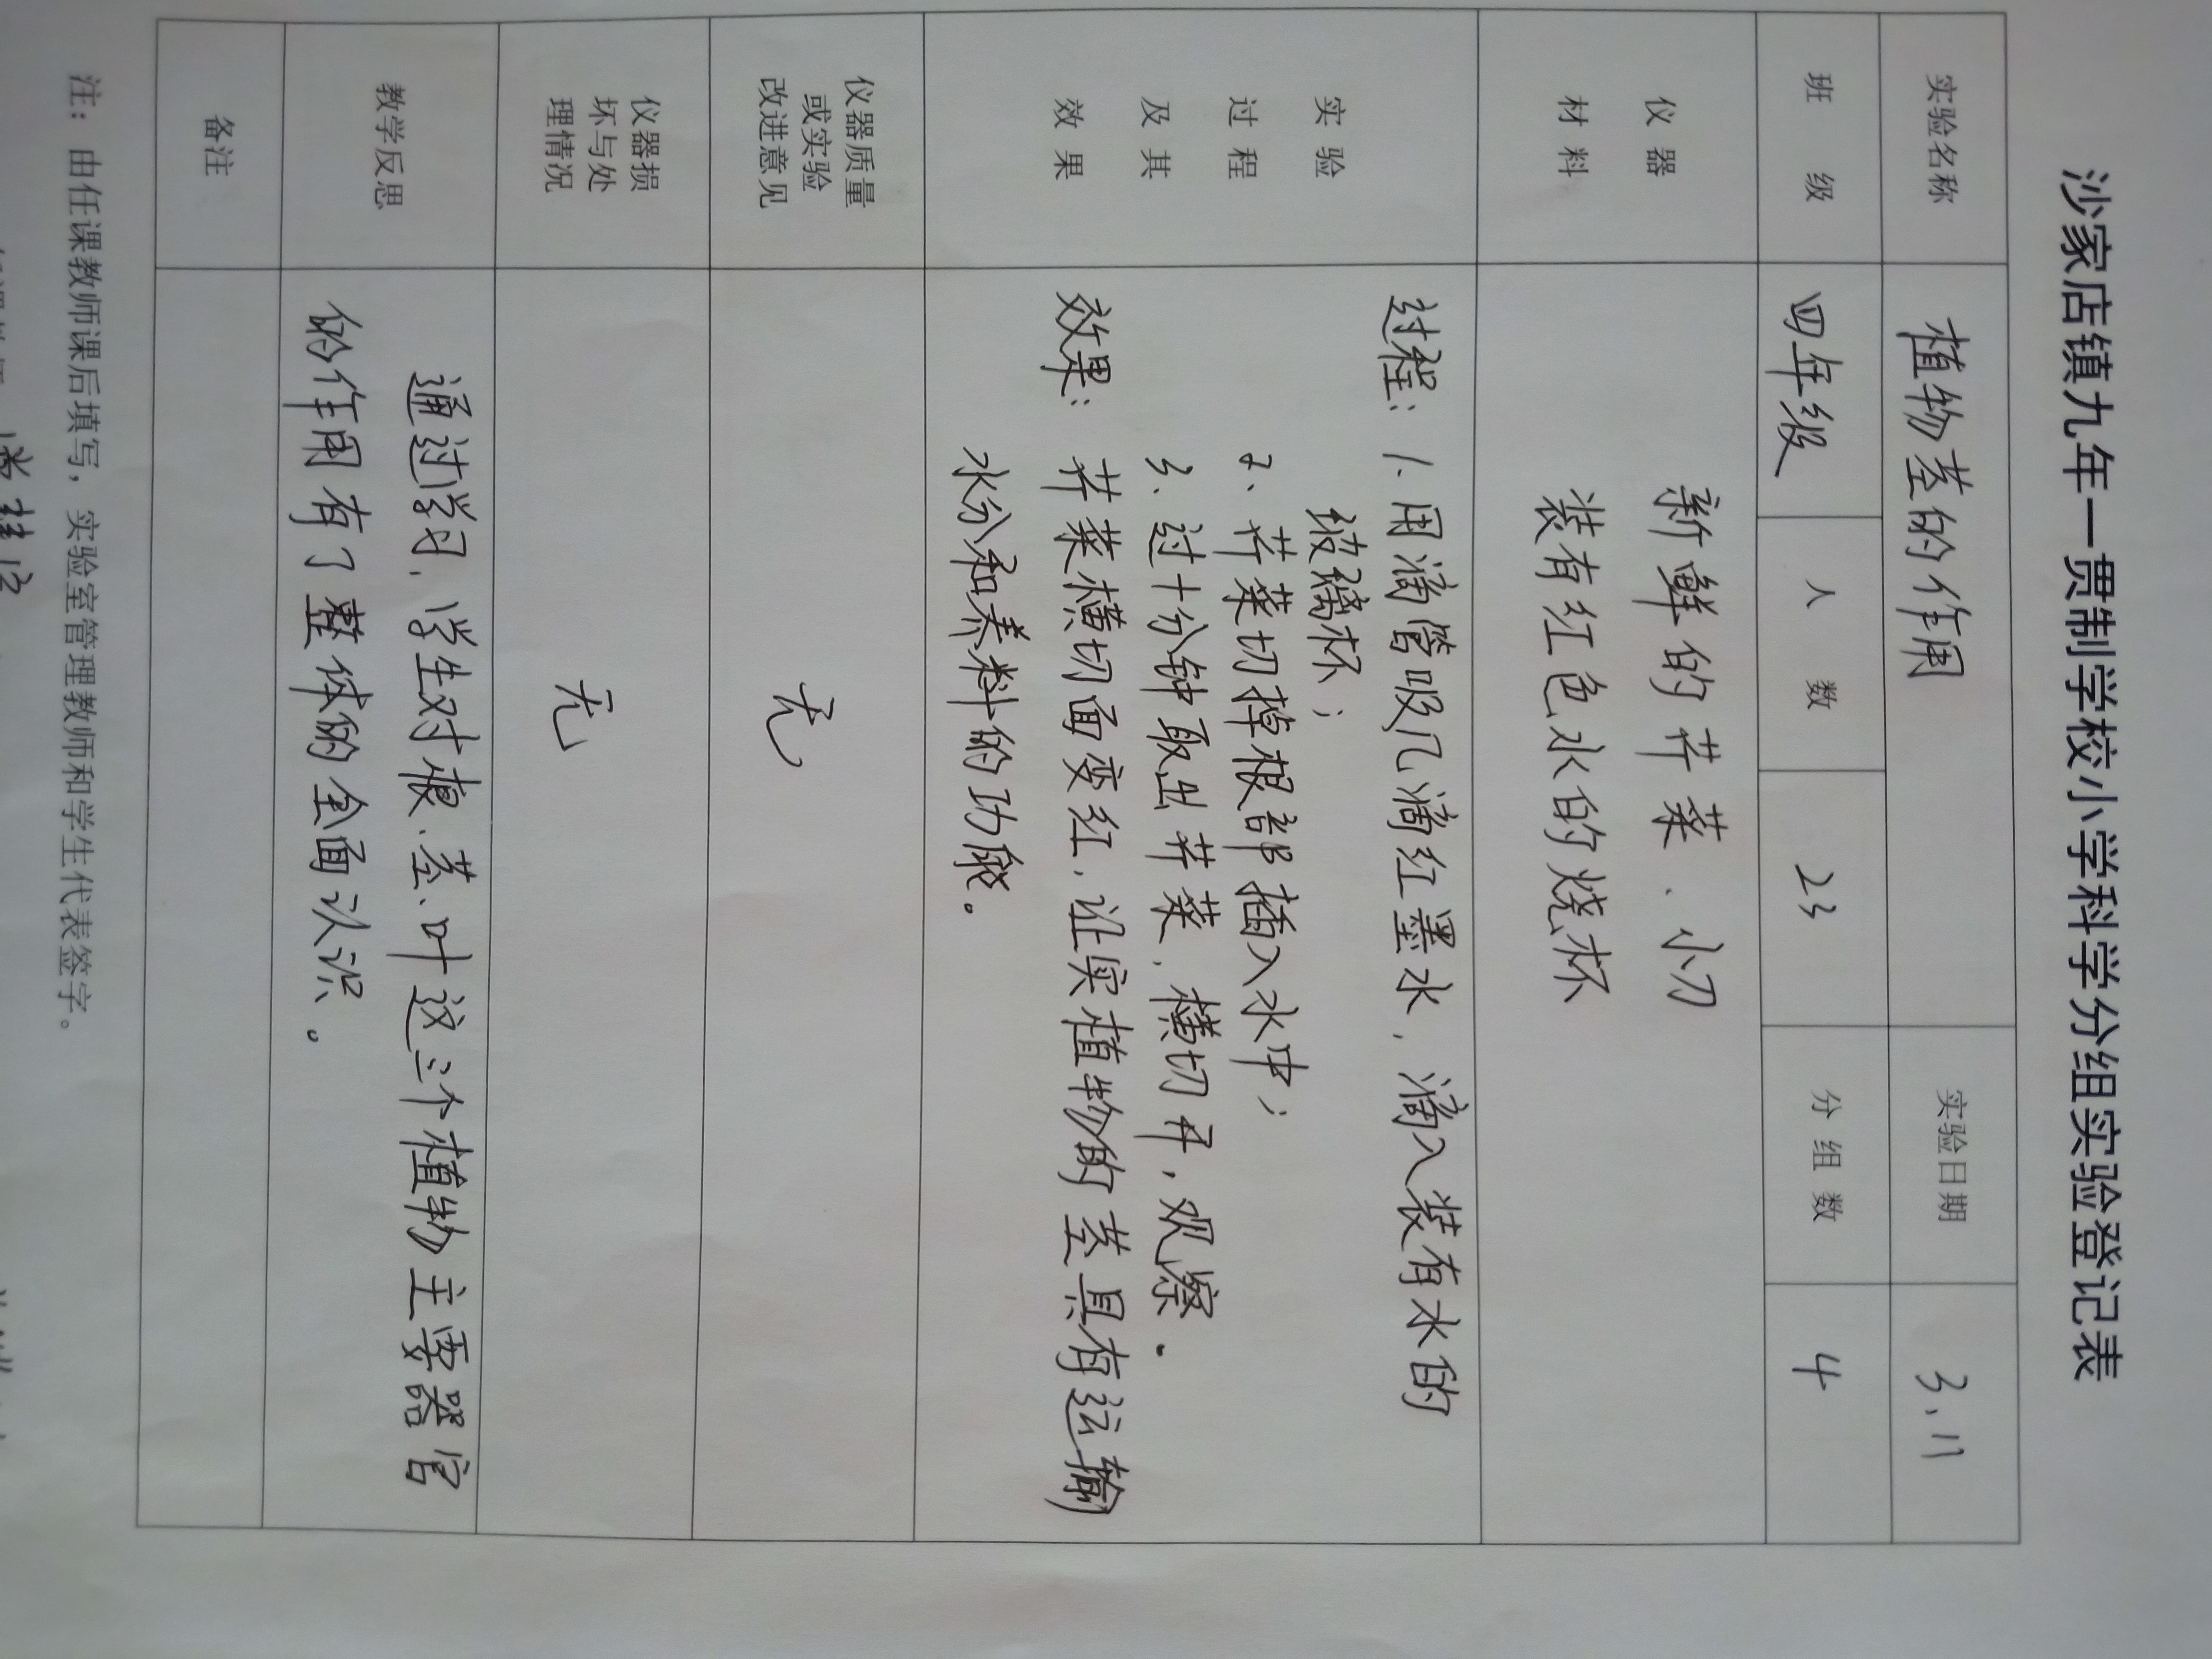 沙家店镇九年一贯制学校小学科学分组实验登记表
实验名称 植物茎的作用 实验日期 3.11
班级 四年级 人数 23 分组数 4
仪器 新鲜的芹菜、小刀
材料 装有红色水的烧杯
过程：1.用滴管吸几滴红墨水，滴入装有水的
实验 玻璃杯；
过程 2、芹菜切掉根部插入水中；
及其 3、过十分钟取出芹菜，横切开，观察.
效果 效果：芹菜横切面变红，让实植物的茎具有运输
水分和养料的功能。
仪器质量
或实验 无
改进意见
仪器损
坏与处 无
理情况
教学反思 通过学习，学生对根、茎、叶这三个植物主要器官
的作用有了整体的全面认识。
备注
注：由任课教师课后填写，实验室管理教师和学生代表签字。